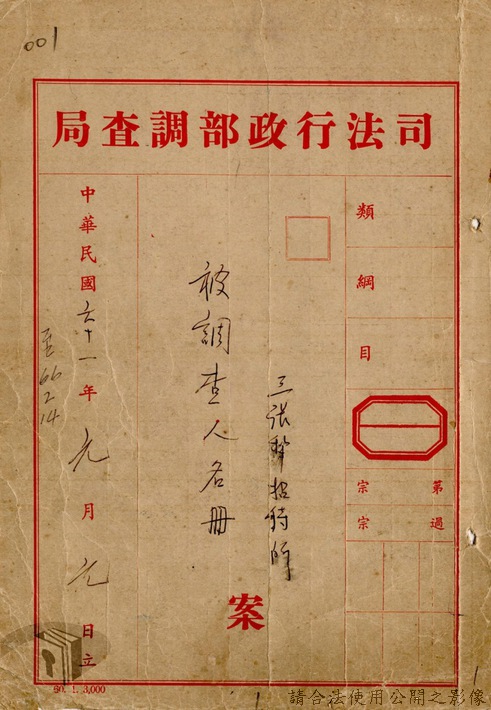 001
司法行政部調查局
類
綱
目
第 宗
過 宗
三張犁招待所
被調查人名冊
案
中華民國六十一年元月元日立
至
66
2
14
60. 1. 3,000
請合法使用公開之影像